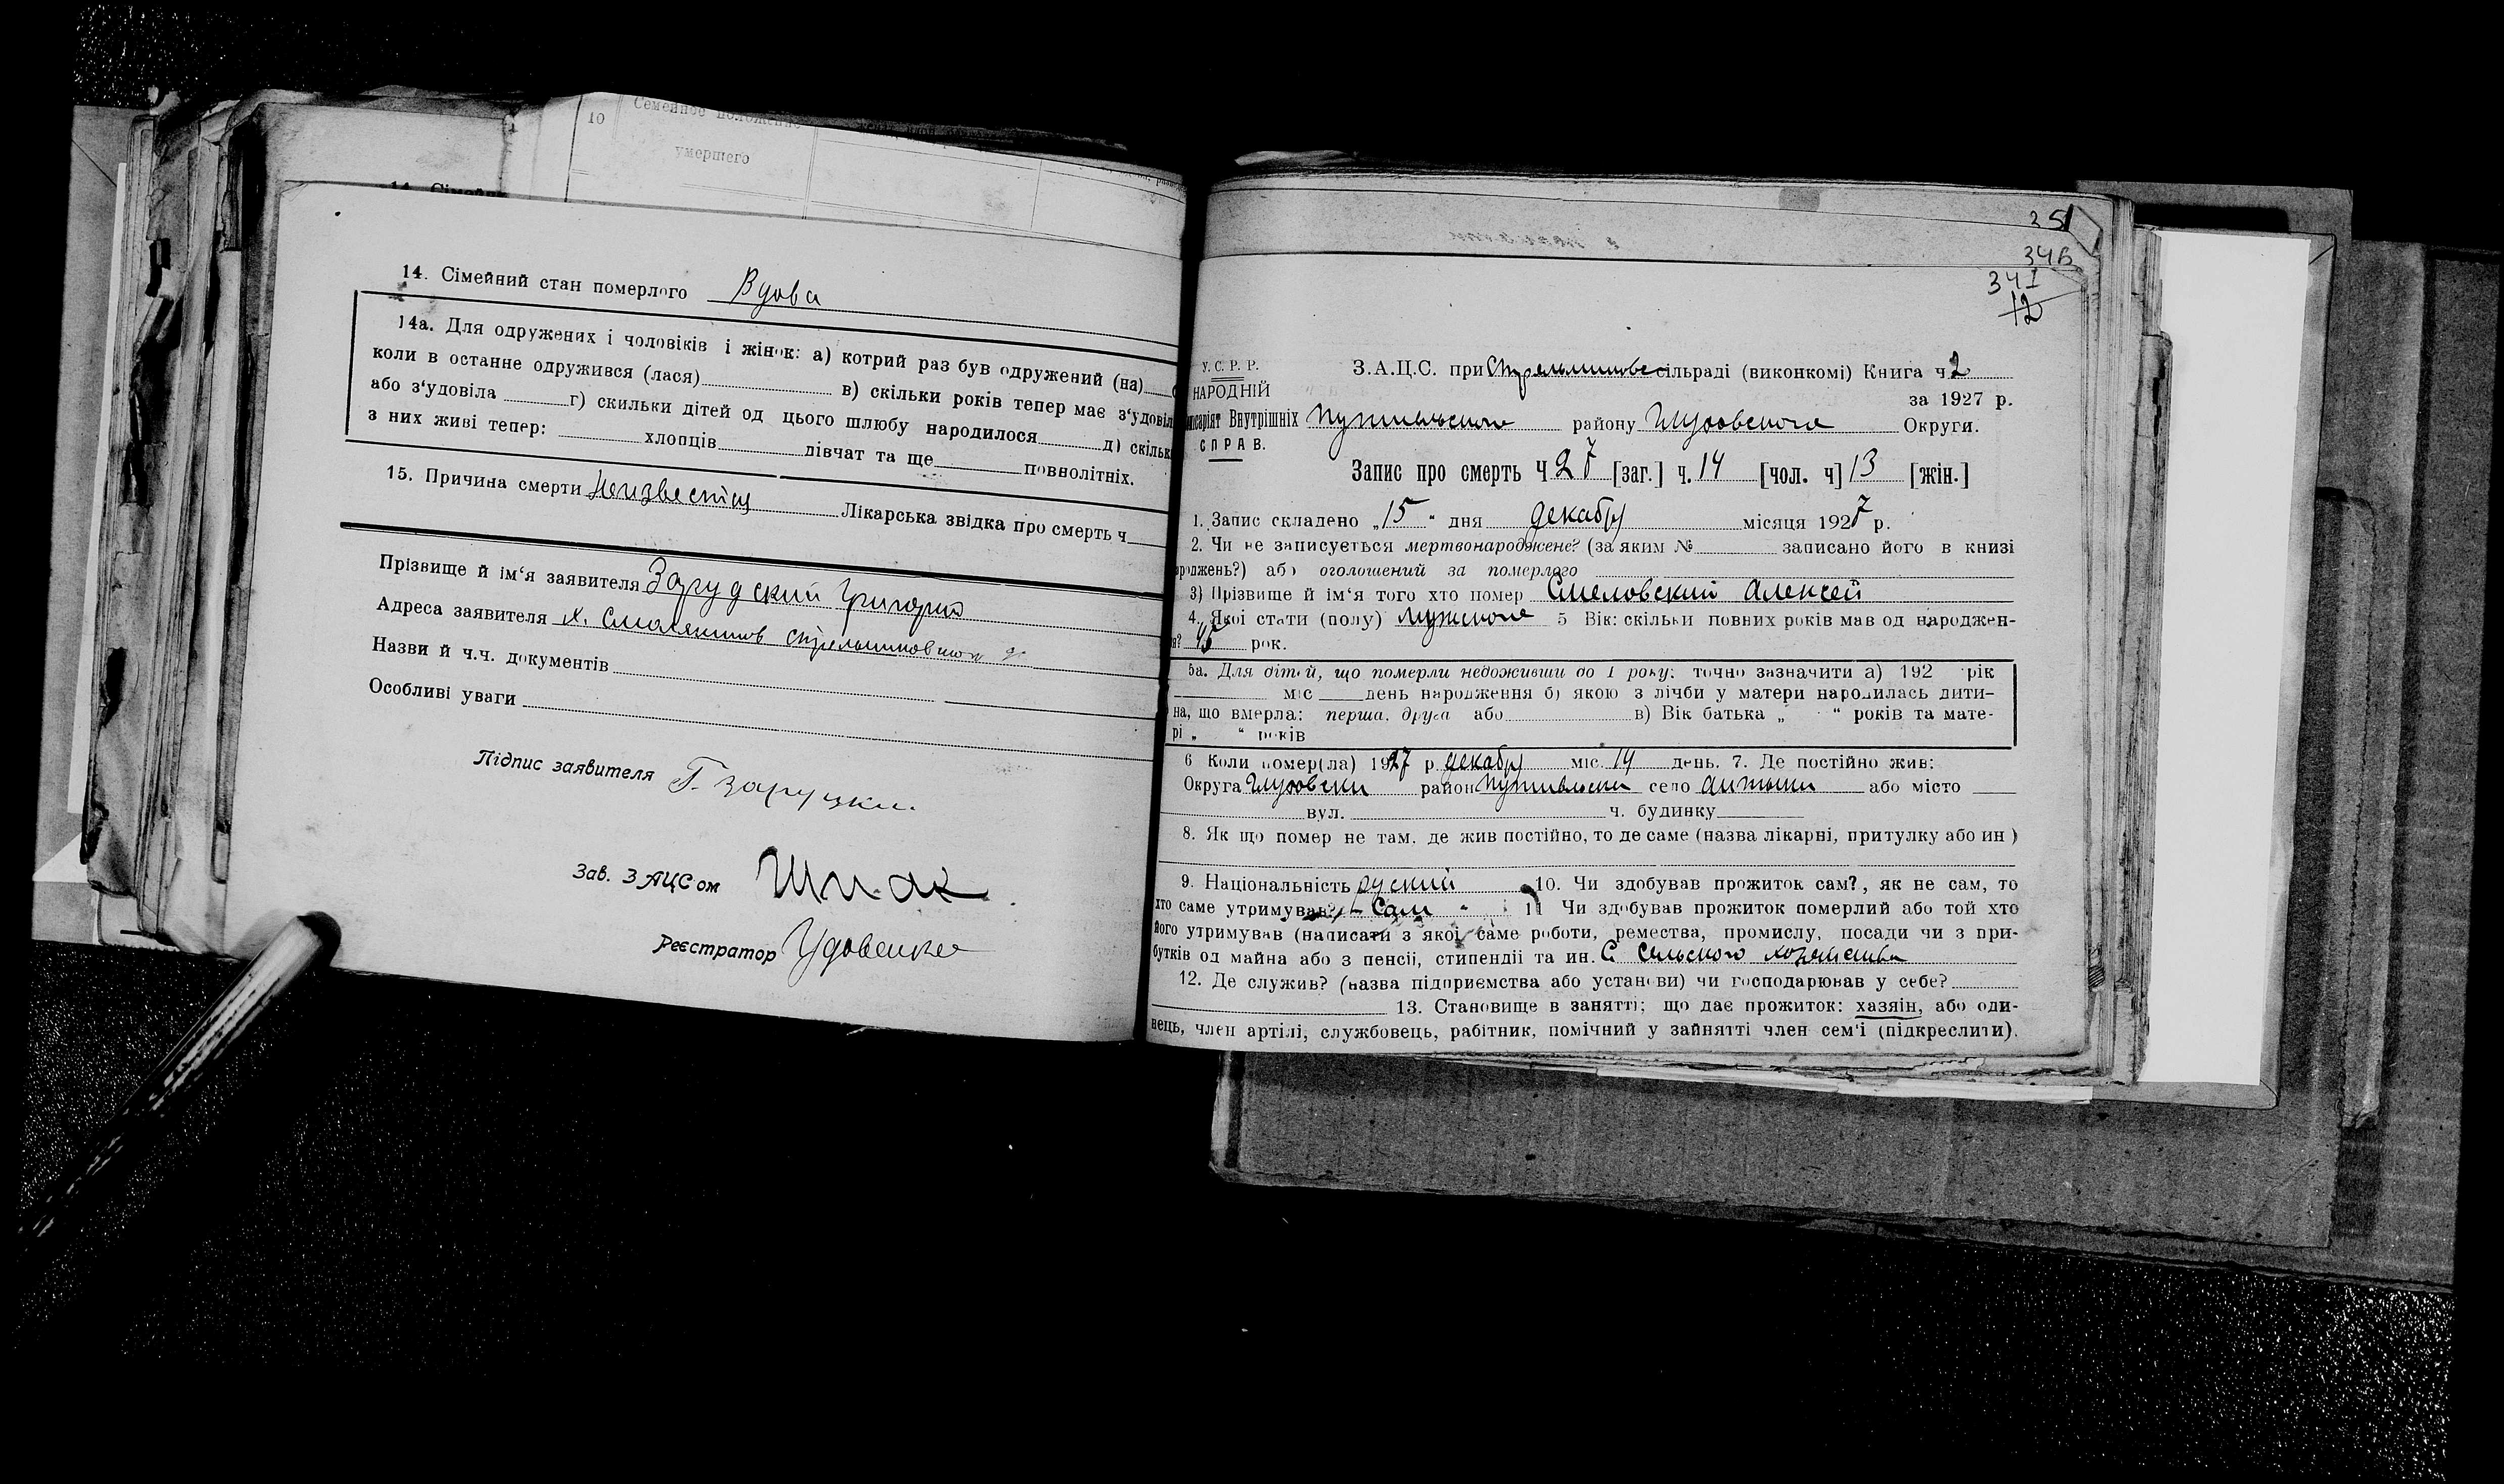 10
Семейное положение
умершего
14. Сімейний стан померлого Вдова
14а. Для одружених і чоловіків і жінок: а) котрий раз був одружений (на)
коли в останне одружився (лася) в) скільки років тепер має з'удовіл
або з'удовіла г) скильки дітей од цього шлюбу народилося д) скільк
з них живі тепер: хлопців дівчат та ще повнолітніх.
15. Причина смерти Неизвестна Лікарська звідка про смерть ч
Прізвище й ім'я заявителя Зарудский Григорий
Адреса заявителя х.
Назви й ч.ч. документів
Особливі уваги
Підпис заявителя Г. Заруцки
Зав. ЗАЦС ом Шпак
Реєстратор Удовенко
351
34В
34I
12
У.С.Р.Р.
НАРОДНІЙ
місаріят Внутрішніх
СПРАВ.
З.А.Ц.С. при сільраді (виконкомі) Книга ч 2
за 1927 р.
Путивльского району Глуховского Округи.
Запис про смерть Ч 27 [заг.] ч. 14 [чол. ч] 13 [жін.]
1. Запис складено „15" дня декабря місяця 1927 р.
2. Чи не записується мертвонароджене? (за яким № записано його в книзі
роджень?) або оголошений за померлого
3) Прізвище й ім'я того хто помер Смеловский Алексей
4. Якої стати (полу) Мужского 5 Вік: скільки повних років мав од народжен-
я? 45 рок.
5а. Для дітей, що померли недоживши до 1 року: точно зазначити а) 192 рік
міс день народження б) якою з лічби у матери народилась дити-
на, що вмерла: перша, друга або в) Вік батька „ " років та мате-
рі „ " років
6 Коли помер(ла) 1927 р декабря міс. 14 день. 7. Де постійно жив:
Округа Глуховски район Путивльски село або місто
вул. ч. будинку
8. Як що помер не там, де жив постійно, то де саме (назва лікарні, притулку або ин )
9. Національність руский 10. Чи здобував прожиток сам?, як не сам, то
хто саме утримував? Сам 11 Чи здобував прожиток померлий або той хто
його утримував (написати з якої саме роботи, ремества, промислу, посади чи з при-
бутків од майна або з пенсії, стипендії та ин. С Сельского хозяйства
12. Де служив? (назва підприємства або установи) чи господарював у себе?
13. Становище в занятті; що дає прожиток: хазяін, або оди-
нець, член артілі, службовець, рабітник, помічний у зайнятті член сем'і (підкреслити).